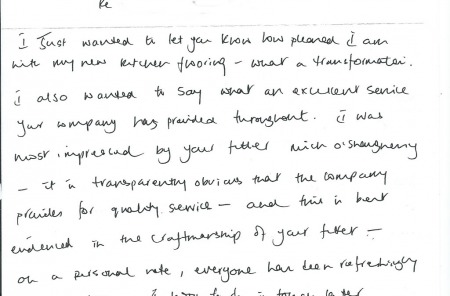 Re
I Just wanted to let you know how pleased I am
with my new kitchen flooring - what a transformation.
I also wanted to say what an excellent service
your company has provided throughout. I was
most impressed by your fitter Mich O'Shaughnessy
- it is transparently obvious that the company
provides for quality service - and this is best
evidenced in the craftmanship of your fitter -
on a personal note, everyone has been refreshingly